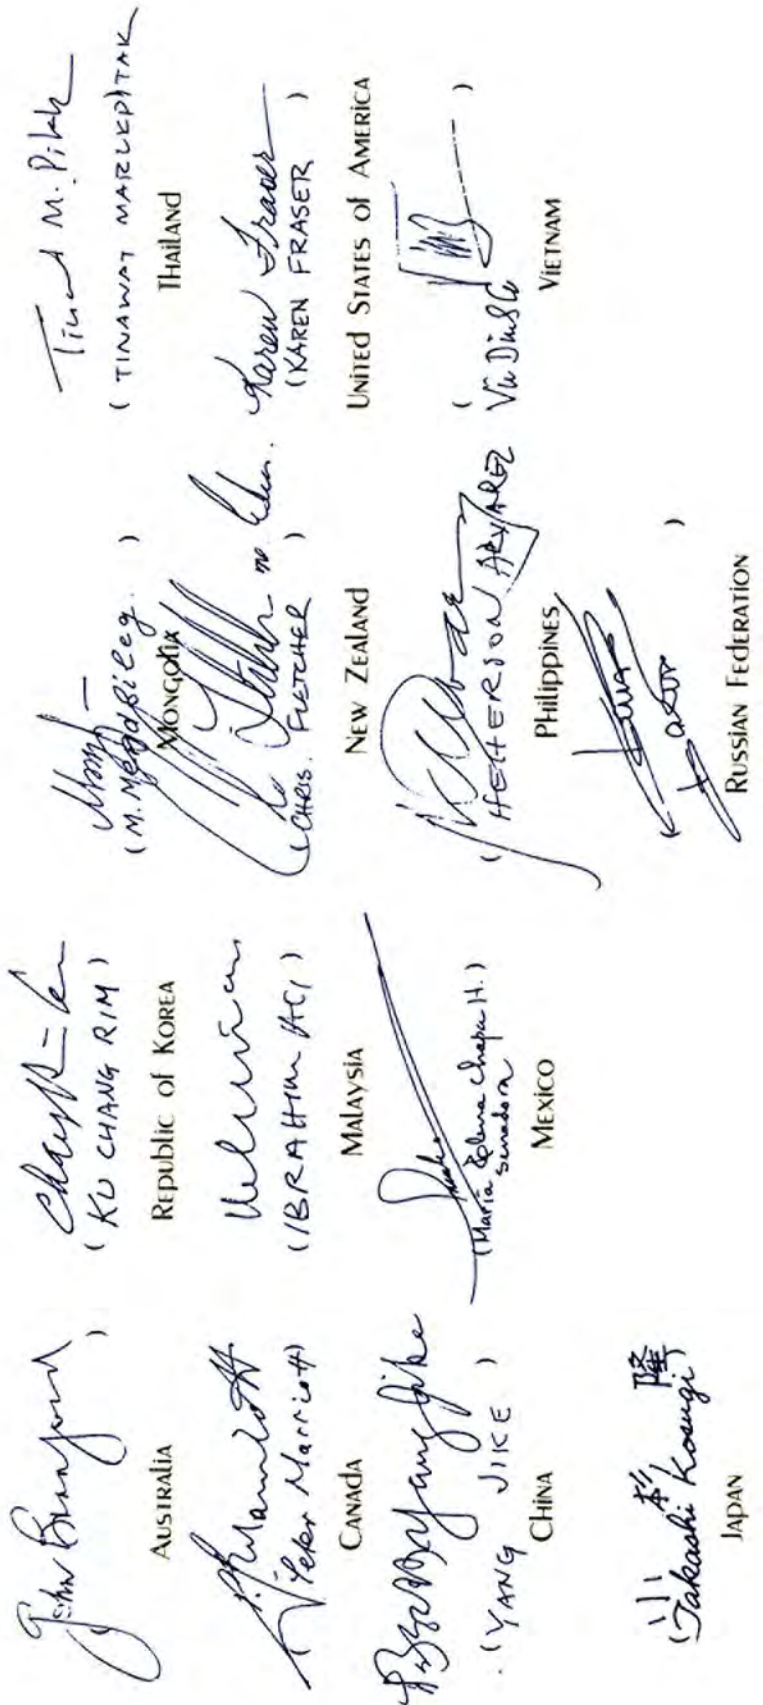 John
)
AUSTRALIA
P. Marriott
(Peter Marriott)
CANADA
Yang Jike
(YANG JIKE)
CHINA
小杉 隆
(Takashi Kosugi)
JAPAN
(KU CHANG RIM)
REPUBLIC of KOREA
(IBRAHIM ALI)
MALAYSIA
(María Elena Chapa H.)
senadora
MEXICO
(M. )
MONGOLIA
(CHRIS. FLETCHER)
NEW ZEALAND
(HEHERSON ALVAREZ
PHILIPPINES
( )
RUSSIAN FEDERATION
M.
(TINAWAT MARUKPITAK
THAILAND
Karen Fraser
(KAREN FRASER)
UNITED STATES of AMERICA
( )
VIETNAM